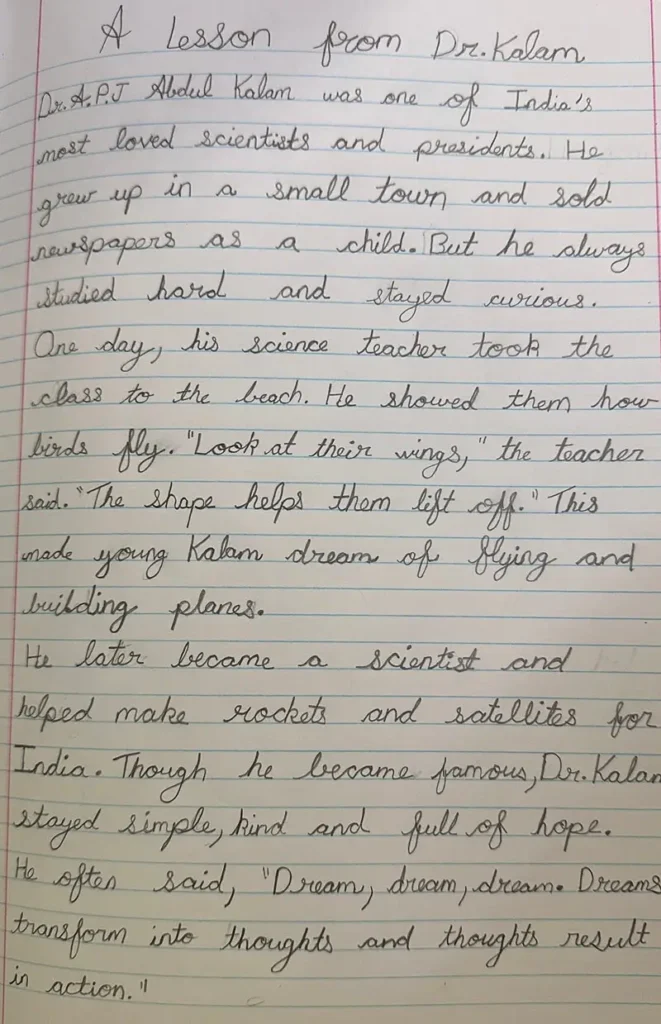 A Lesson from Dr. Kalam
Dr. A.P.J Abdul Kalam was one of India's
most loved scientists and presidents. He
grew up in a small town and sold
newspapers as a child. But he always
studied hard and stayed curious.
One day, his science teacher took the
class to the beach. He showed them how
birds fly. "Look at their wings," the teacher
said. "The shape helps them lift off." This
made young Kalam dream of flying and
building planes.
He later became a scientist and
helped make rockets and satellites for
India. Though he became famous, Dr. Kalam
stayed simple, kind and full of hope.
He often said, "Dream, dream, dream. Dreams
transform into thoughts and thoughts result
in action."